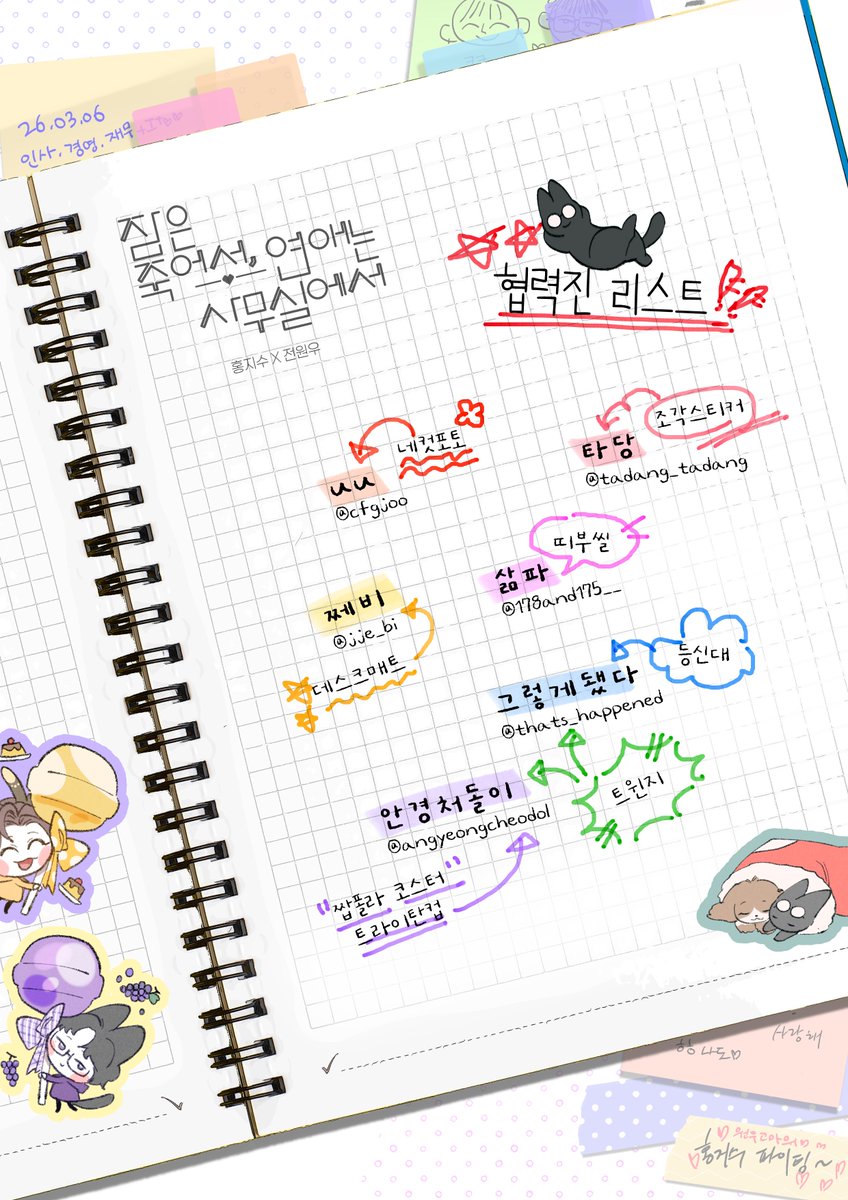 26.03.06
인사.경영.재무
잠은
죽어서, 연애는
사무실에서
홍지수 X 전원우
협력진 리스트
네컷포토
UU
@cfgjoo
조각스티커
타당
@tadang_tadang
띠부씰
삶파
@178and175__
쩨비
@jje_bi
데스크매트
등신대
그렇게됐다
@thats_happened
트윈지
안경처돌이
@angyeongcheodol
"짭폴라 코스터"
트라이탄컵
사랑해
항 나도
원우고마워
홍지수 파이팅~